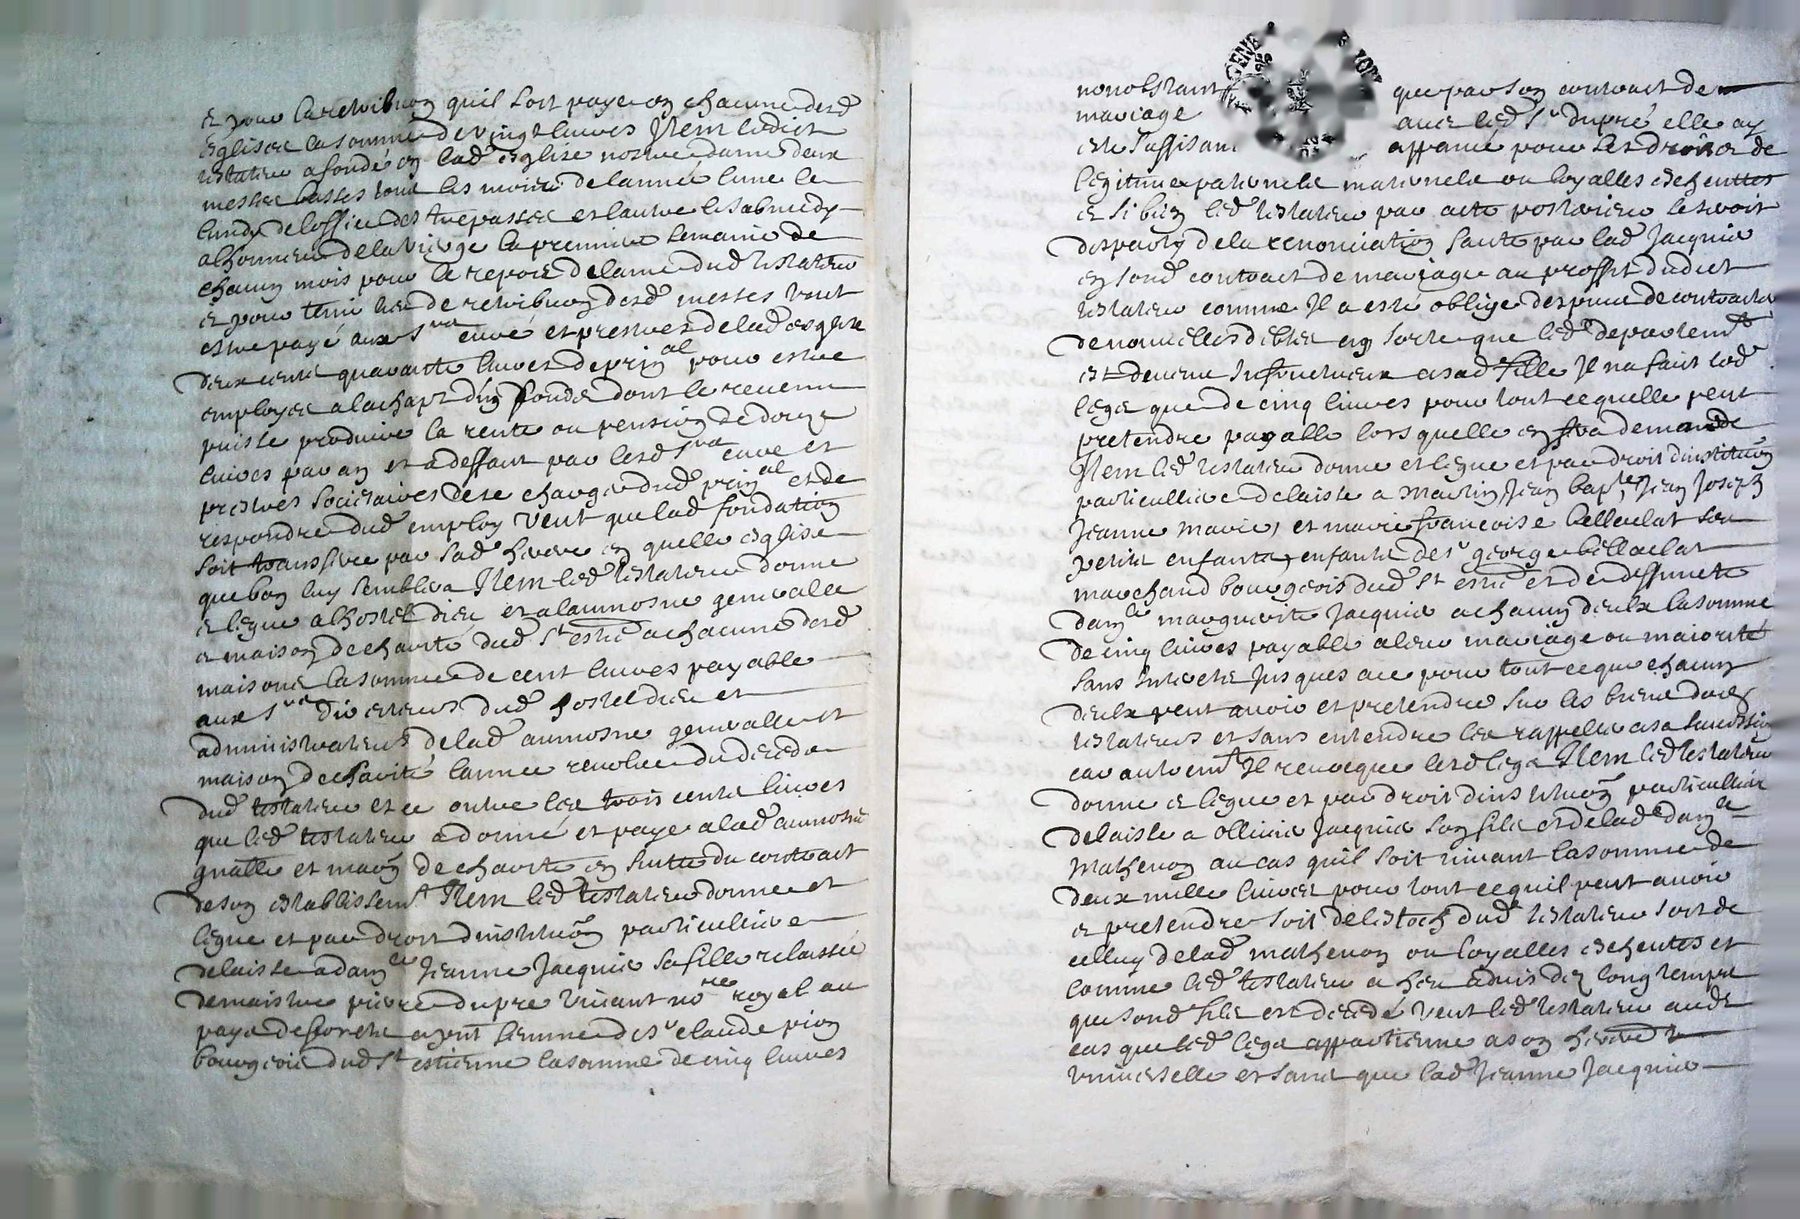 et pour la retribuon quil soit payé en chacune desd
eglises la somme de vingt livres Item ledict
testateur a fondé en lad eglise nostre dame deux
messes basses tous les mois de lannée lune le
lundy de loffice des trepasses et lautre le sabmedy
a lhonneur de la vierge la premiere semaine de
chacun mois pour le repos de lame dud testateur
et pour tenir lieu de retribuon desd messes veut
estre payé aux srs curé et prestres de lad esglise
deux cents quarante livres de prinal pour estre
employes a lachapt dun fonds dont le revenu
puisse produire la rente ou pension de douze
livres par an et a deffaut par lesd srs curé et
prestres societaires de se charger dud prinal et de
respondre dud employ veut que lad fondation
soit transferée par sad heritiere en quelle eglise
que bon luy semblera Item led testateur donne
et legue a lhostel dieu et a laumosne generalle
et maison de charité dud st estne a chacune desd
maisons la somme de cent livres payable
aux srs directeurs dud hostel dieu et
administrateurs de lad aumosne generalle et
maison de charité lannée revolue du deceds
dud testateur et ce outre les trois cents livres
que led testateur a donné et payé a lad aumosne
gnalle et maon de charité en suitte du contract
de son establissemt Item led testateur donne et
legue et par droit dinstituon particulliere
delaisse a damlle Jeanne Jacquier sa fille relaissée
de maistre pierre dupre vivant nore royal au
pays de forests a pnt femme de sr claude pion
bourgeois dud st estienne la somme de cinq livres
nonobstant que par son contract de
mariage avec led sr dupré elle ay
esté suffisam appanée pour ses droits de
legitime paternelle maternelle ou loyalles escheuttes
et si bien led testateur par acte posterieur se seroit
desparty de la renonciation faitte par lad Jacquier
en sond contract de mariage au proffit dudict
testateur comme Il a esté obligé despuis de contracter
de nouvelles debtes en sorte que led departemt
est devenu Infructueux a sad fille Il na fait led
legs que de cinq livres pour tout ce quelle peut
pretendre payable lors quelle en fera demande
Item led testateur donne et legue et par droit dinstituon
particulliere delaisse a Martin, Jean bapte, Jean Joseph
Jeanne Marie, et marie francoise bellaclat ses
petits enfants, enfants de sr george bellaclat
marchand bourgeois dud st estne et de deffuncte
damlle marguerite Jacquier a chacun deulx la somme
de cinq livres payable a leur mariage ou majorité
sans Interests Jusques a ce pour tout ce que chacun
deulx peut avoir et pretendre sur les biens dud
testateur et sans entendre les rappeller a sa succession
car autremt Il revocque lesd legs Item led testateur
donne et legue et par droit dinstituon particulliere
delaisse a Ollivier Jacquier son fils et de lad damlle
Mathevon au cas quil soit vivant la somme de
deux mille livres pour tout ce quil peut avoir
et pretendre soit de lestoch dud testateur soit de
celluy de lad mathevon ou loyalles escheutes et
comme led testateur a heu advis dez longtemps
que sond fils est decedé veut led testateur aud
cas que led legs appartienne a son heritiere
universelle et sans que lad Jeanne Jacquier